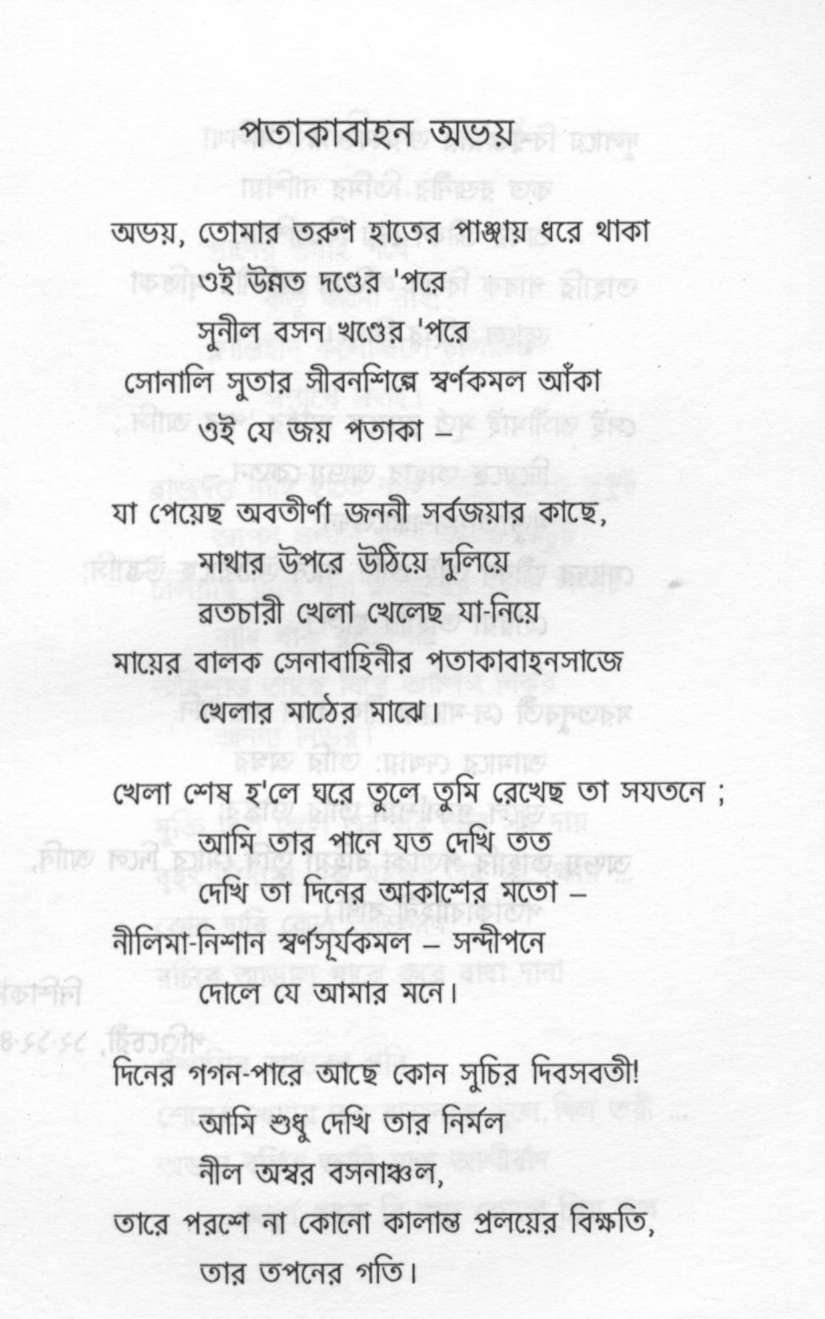 পতাকাবাহন অভয়
অভয়, তোমার তরুণ হাতের পাঞ্জায় ধরে থাকা
ওই উন্নত দণ্ডের 'পরে
সুনীল বসন খণ্ডের 'পরে
সোনালি সুতার সীবনশিল্পে স্বর্ণকমল আঁকা
ওই যে জয় পতাকা –
যা পেয়েছ অবতীর্ণা জননী সর্বজয়ার কাছে,
মাথার উপরে উঠিয়ে দুলিয়ে
ব্রতচারী খেলা খেলেছ যা-নিয়ে
মায়ের বালক সেনাবাহিনীর পতাকাবাহনসাজে
খেলার মাঠের মাঝে।
খেলা শেষ হ'লে ঘরে তুলে তুমি রেখেছ তা সযতনে ;
আমি তার পানে যত দেখি তত
দেখি তা দিনের আকাশের মতো –
নীলিমা-নিশান স্বর্ণসূর্যকমল – সন্দীপনে
দোলে যে আমার মনে।
দিনের গগন-পারে আছে কোন সুচির দিবসবতী!
আমি শুধু দেখি তার নির্মল
নীল অম্বর বসনাঞ্চল,
তারে পরশে না কোনো কালান্ত প্রলয়ের বিক্ষতি,
তার তপনের গতি।